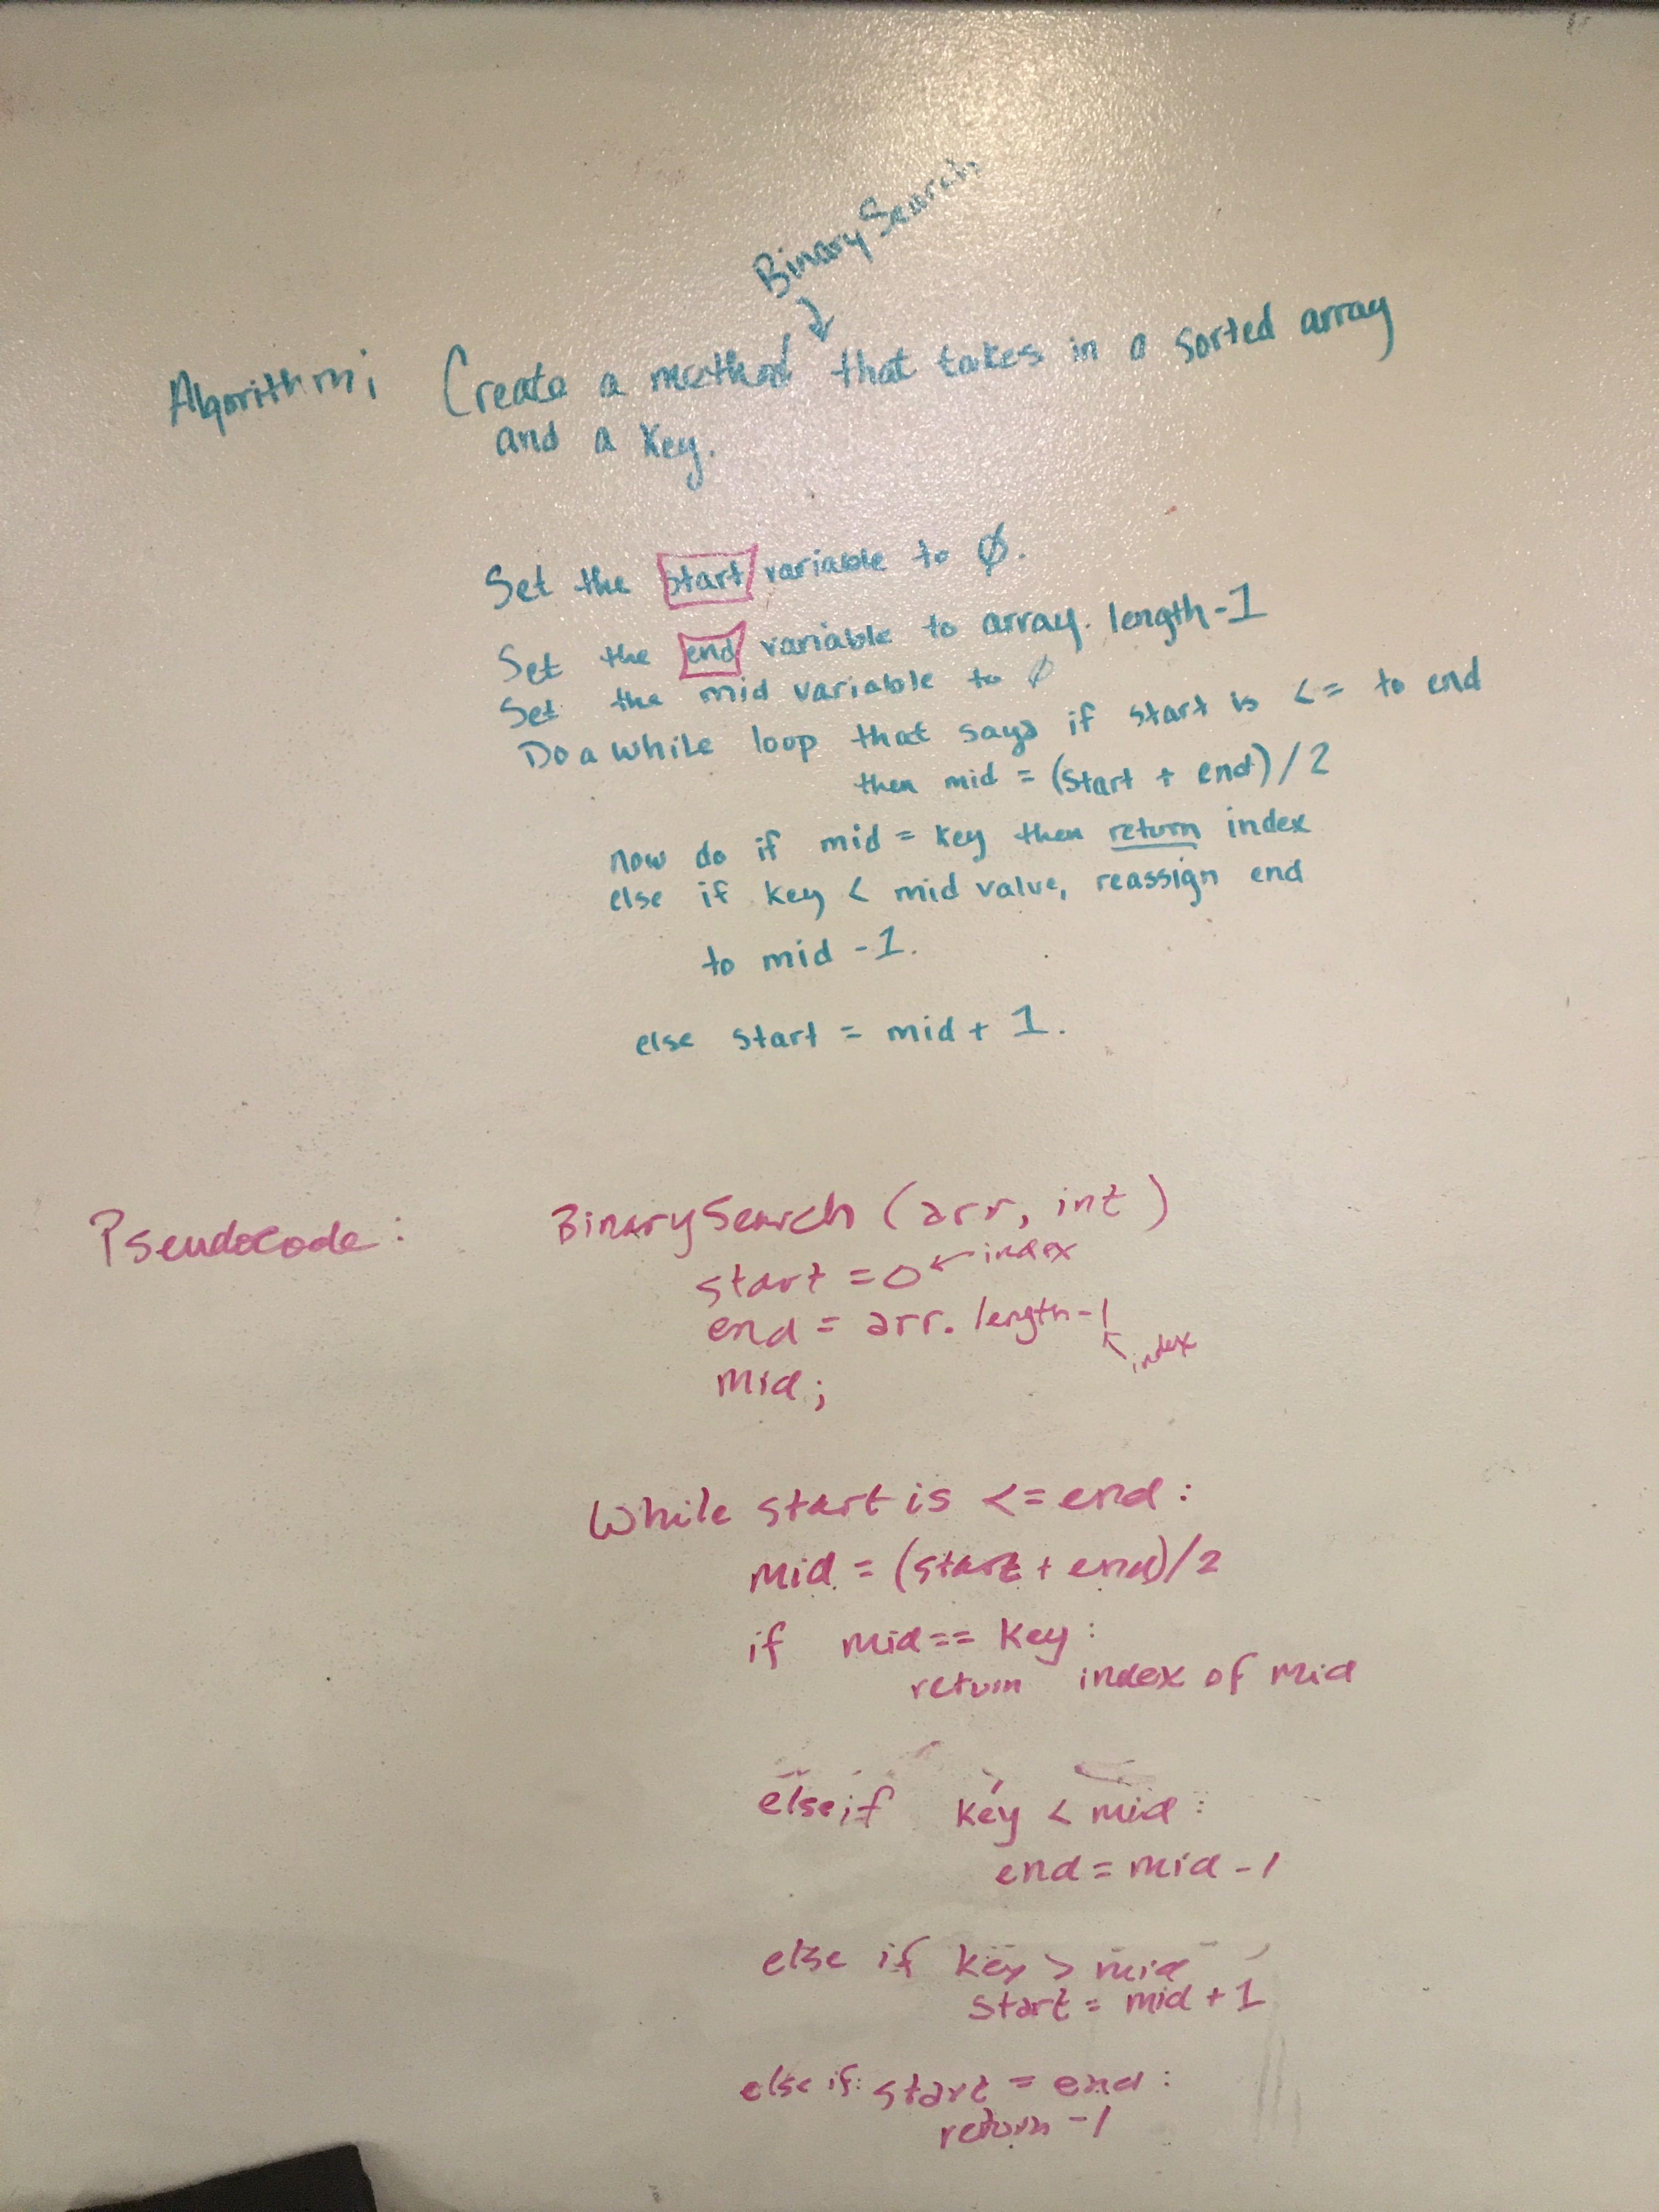 BinarySearch
↓
Algorithm: Create a method that takes in a sorted array
and a key.
Set the start variable to ∅.
Set the end variable to array.length-1
Set the mid variable to ∅
Do a while loop that says if start is <= to end
then mid = (start + end)/2
now do if mid = key then return index
else if key < mid value, reassign end
to mid -1.
else start = mid + 1.
Pseudocode: BinarySearch (arr, int)
start = 0 ← index
end = arr.length-1
↖ index
mid;
While start is <= end:
mid = (start + end)/2
if mid == key:
return index of mid
else if key < mid:
end = mid - 1
else if key > mid
start = mid + 1
else if: start = end:
return -1